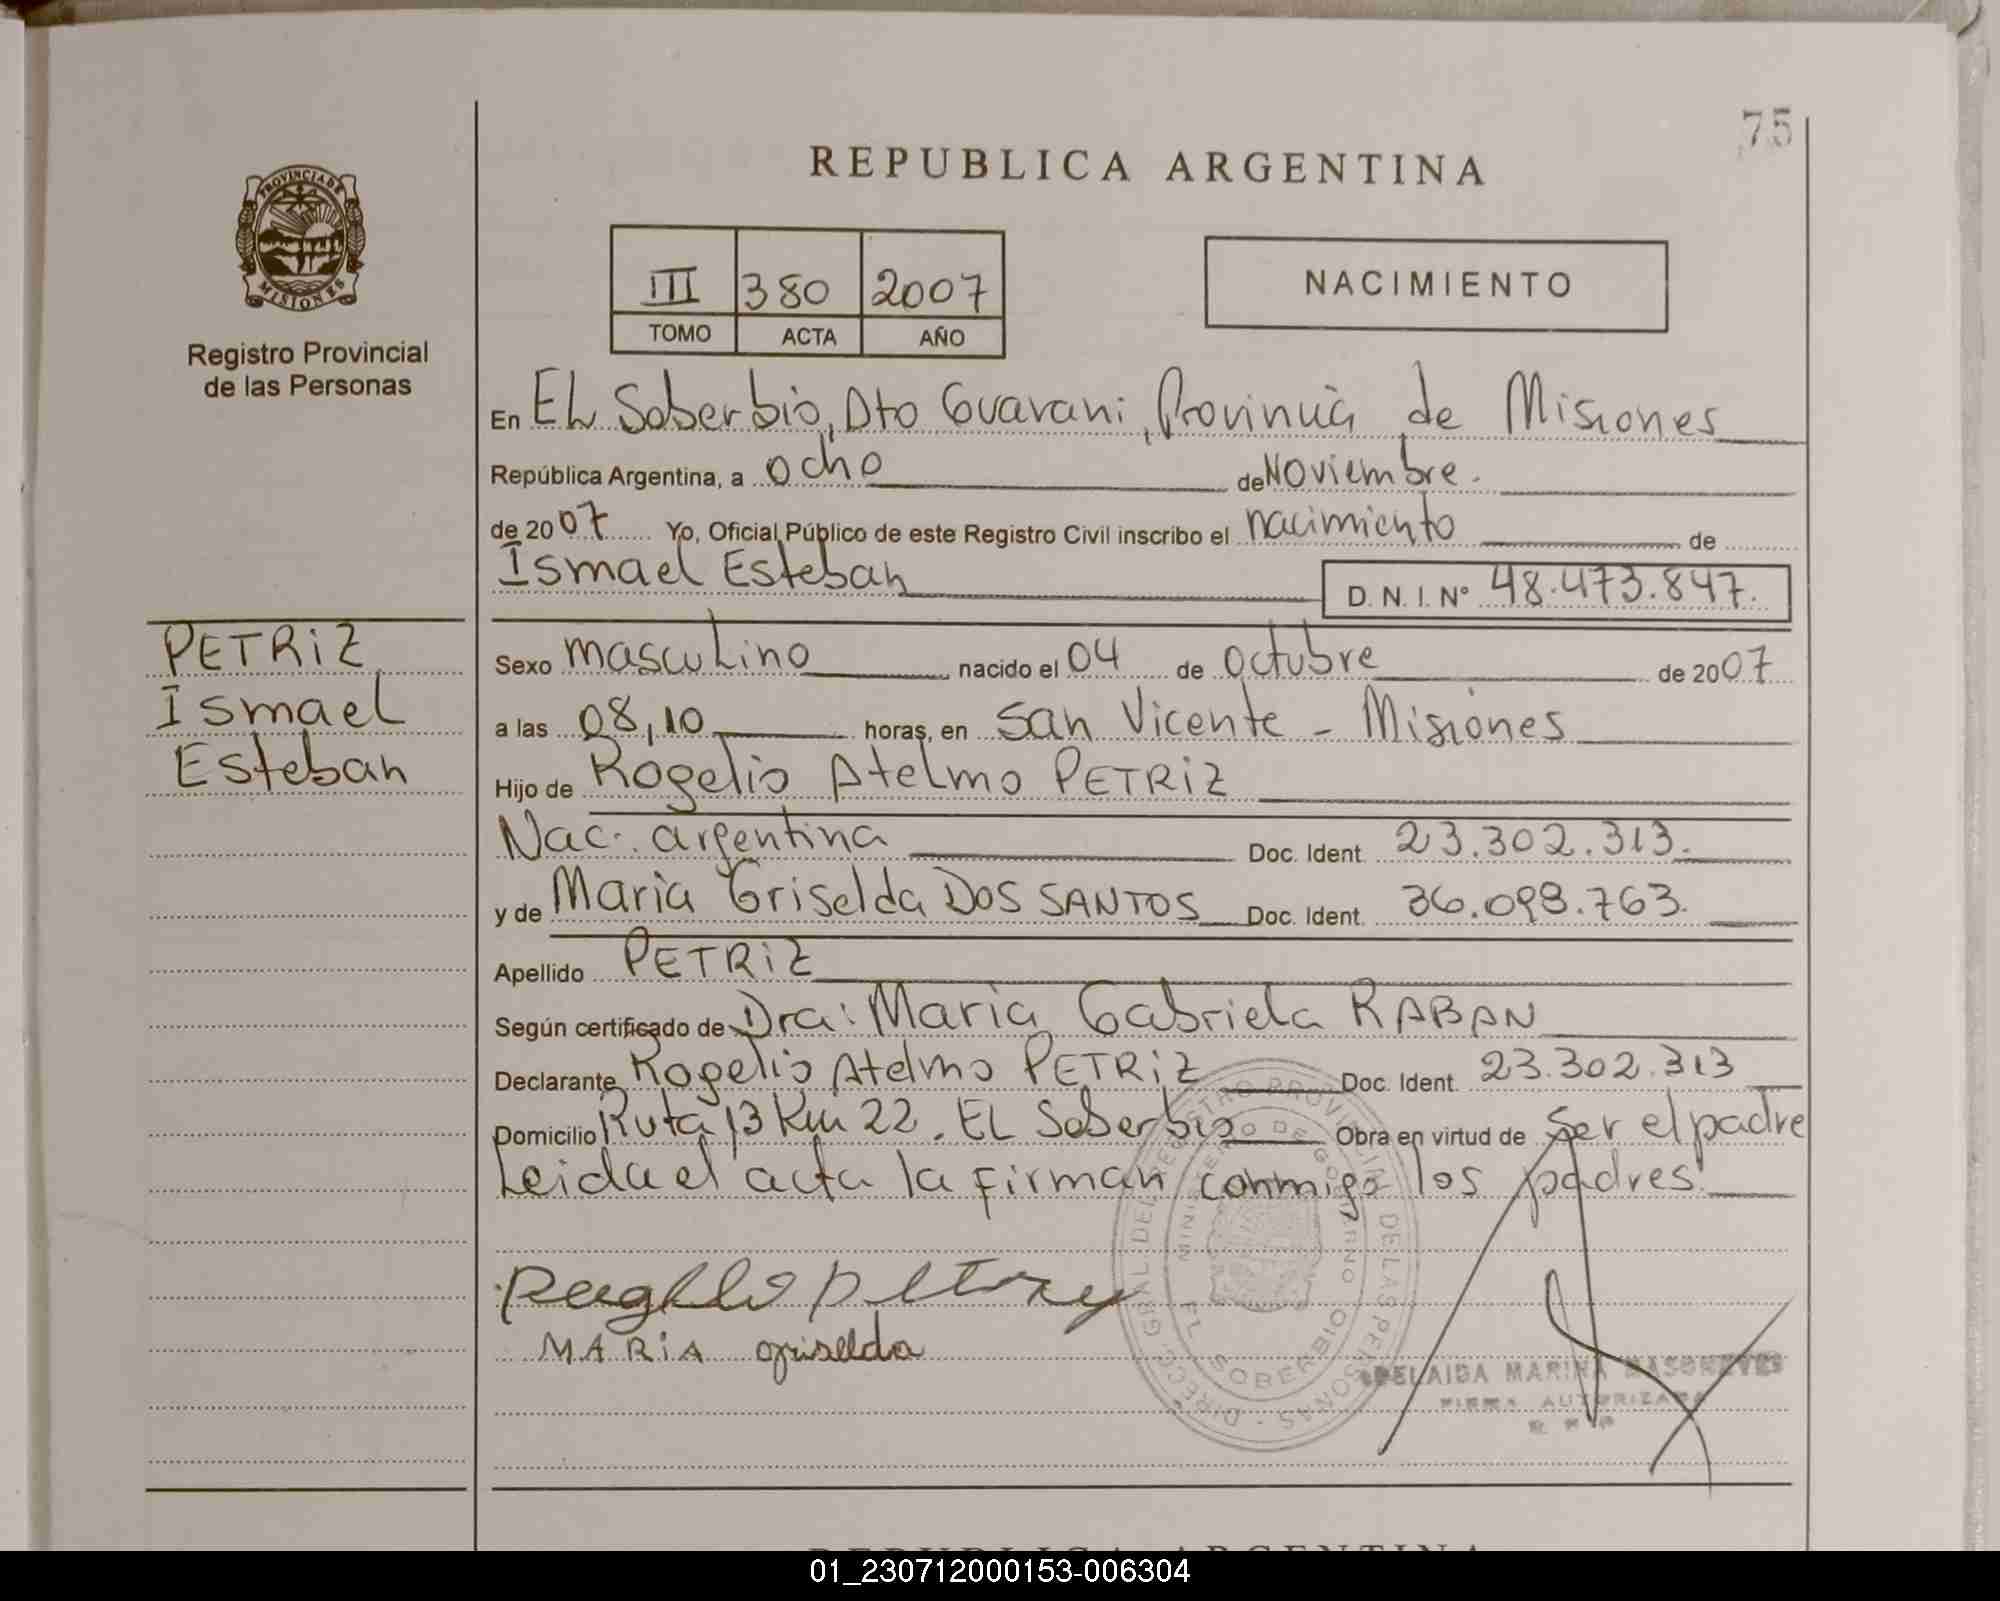 75
REPUBLICA ARGENTINA
PROVINCIA DE
MISIONES
Registro Provincial
de las Personas
III 380 2007
TOMO ACTA AÑO
NACIMIENTO
En EL Soberbio, Dto Guarani, Provincia de Misiones
República Argentina, a ocho de Noviembre.
de 2007 Yo, Oficial Público de este Registro Civil inscribo el nacimiento de
Ismael Esteban D. N. I. Nº 48.473.847.
PETRIZ
Ismael
Esteban
Sexo masculino nacido el 04 de octubre de 2007
a las 08,10 horas, en San Vicente - Misiones
Hijo de Rogelio Atelmo PETRIZ
Nac. argentina Doc. Ident. 23.302.313.
y de Maria Griselda DOS SANTOS Doc. Ident. 36.098.763.
Apellido PETRIZ
Según certificado de Dra: Maria Gabriela RABAN
Declarante Rogelio Atelmo PETRIZ Doc. Ident. 23.302.313
Domicilio Ruta 13 Km 22. EL Soberbio Obra en virtud de ser el padre
Leida el acta la firman conmigo los padres.
MARIA griselda
DIRECC. GRAL. DEL REGISTRO PROVINCIAL DE LAS PERSONAS
MINISTERIO DE GOBIERNO
EL SOBERBIO
ADELAIDA MARINA
FIRMA AUTORIZADA
REPUBLICA ARGENTINA
01_230712000153-006304